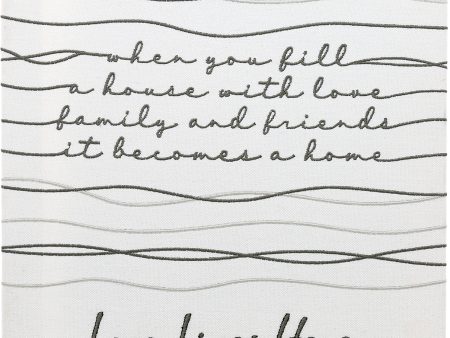 when you fill
a house with love
family and friends
it becomes a home